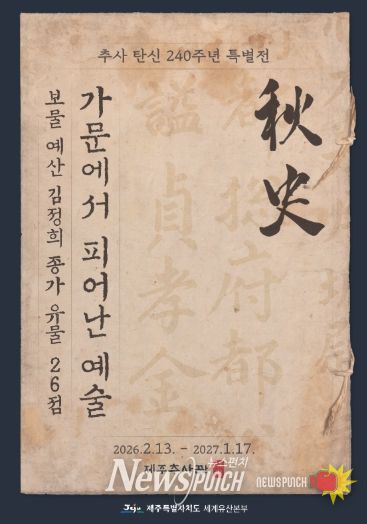 추사 탄신 240주년 특별전
秋史
가문에서 피어난 예술
보물 예산 김정희 종가 유물 26점
謚貞孝金
府都
2026.2.13. - 2027.1.17.
제주추사관
뉴스펀치
NewsPunch
NEWSPUNCH
Jeju 제주특별자치도 세계유산본부